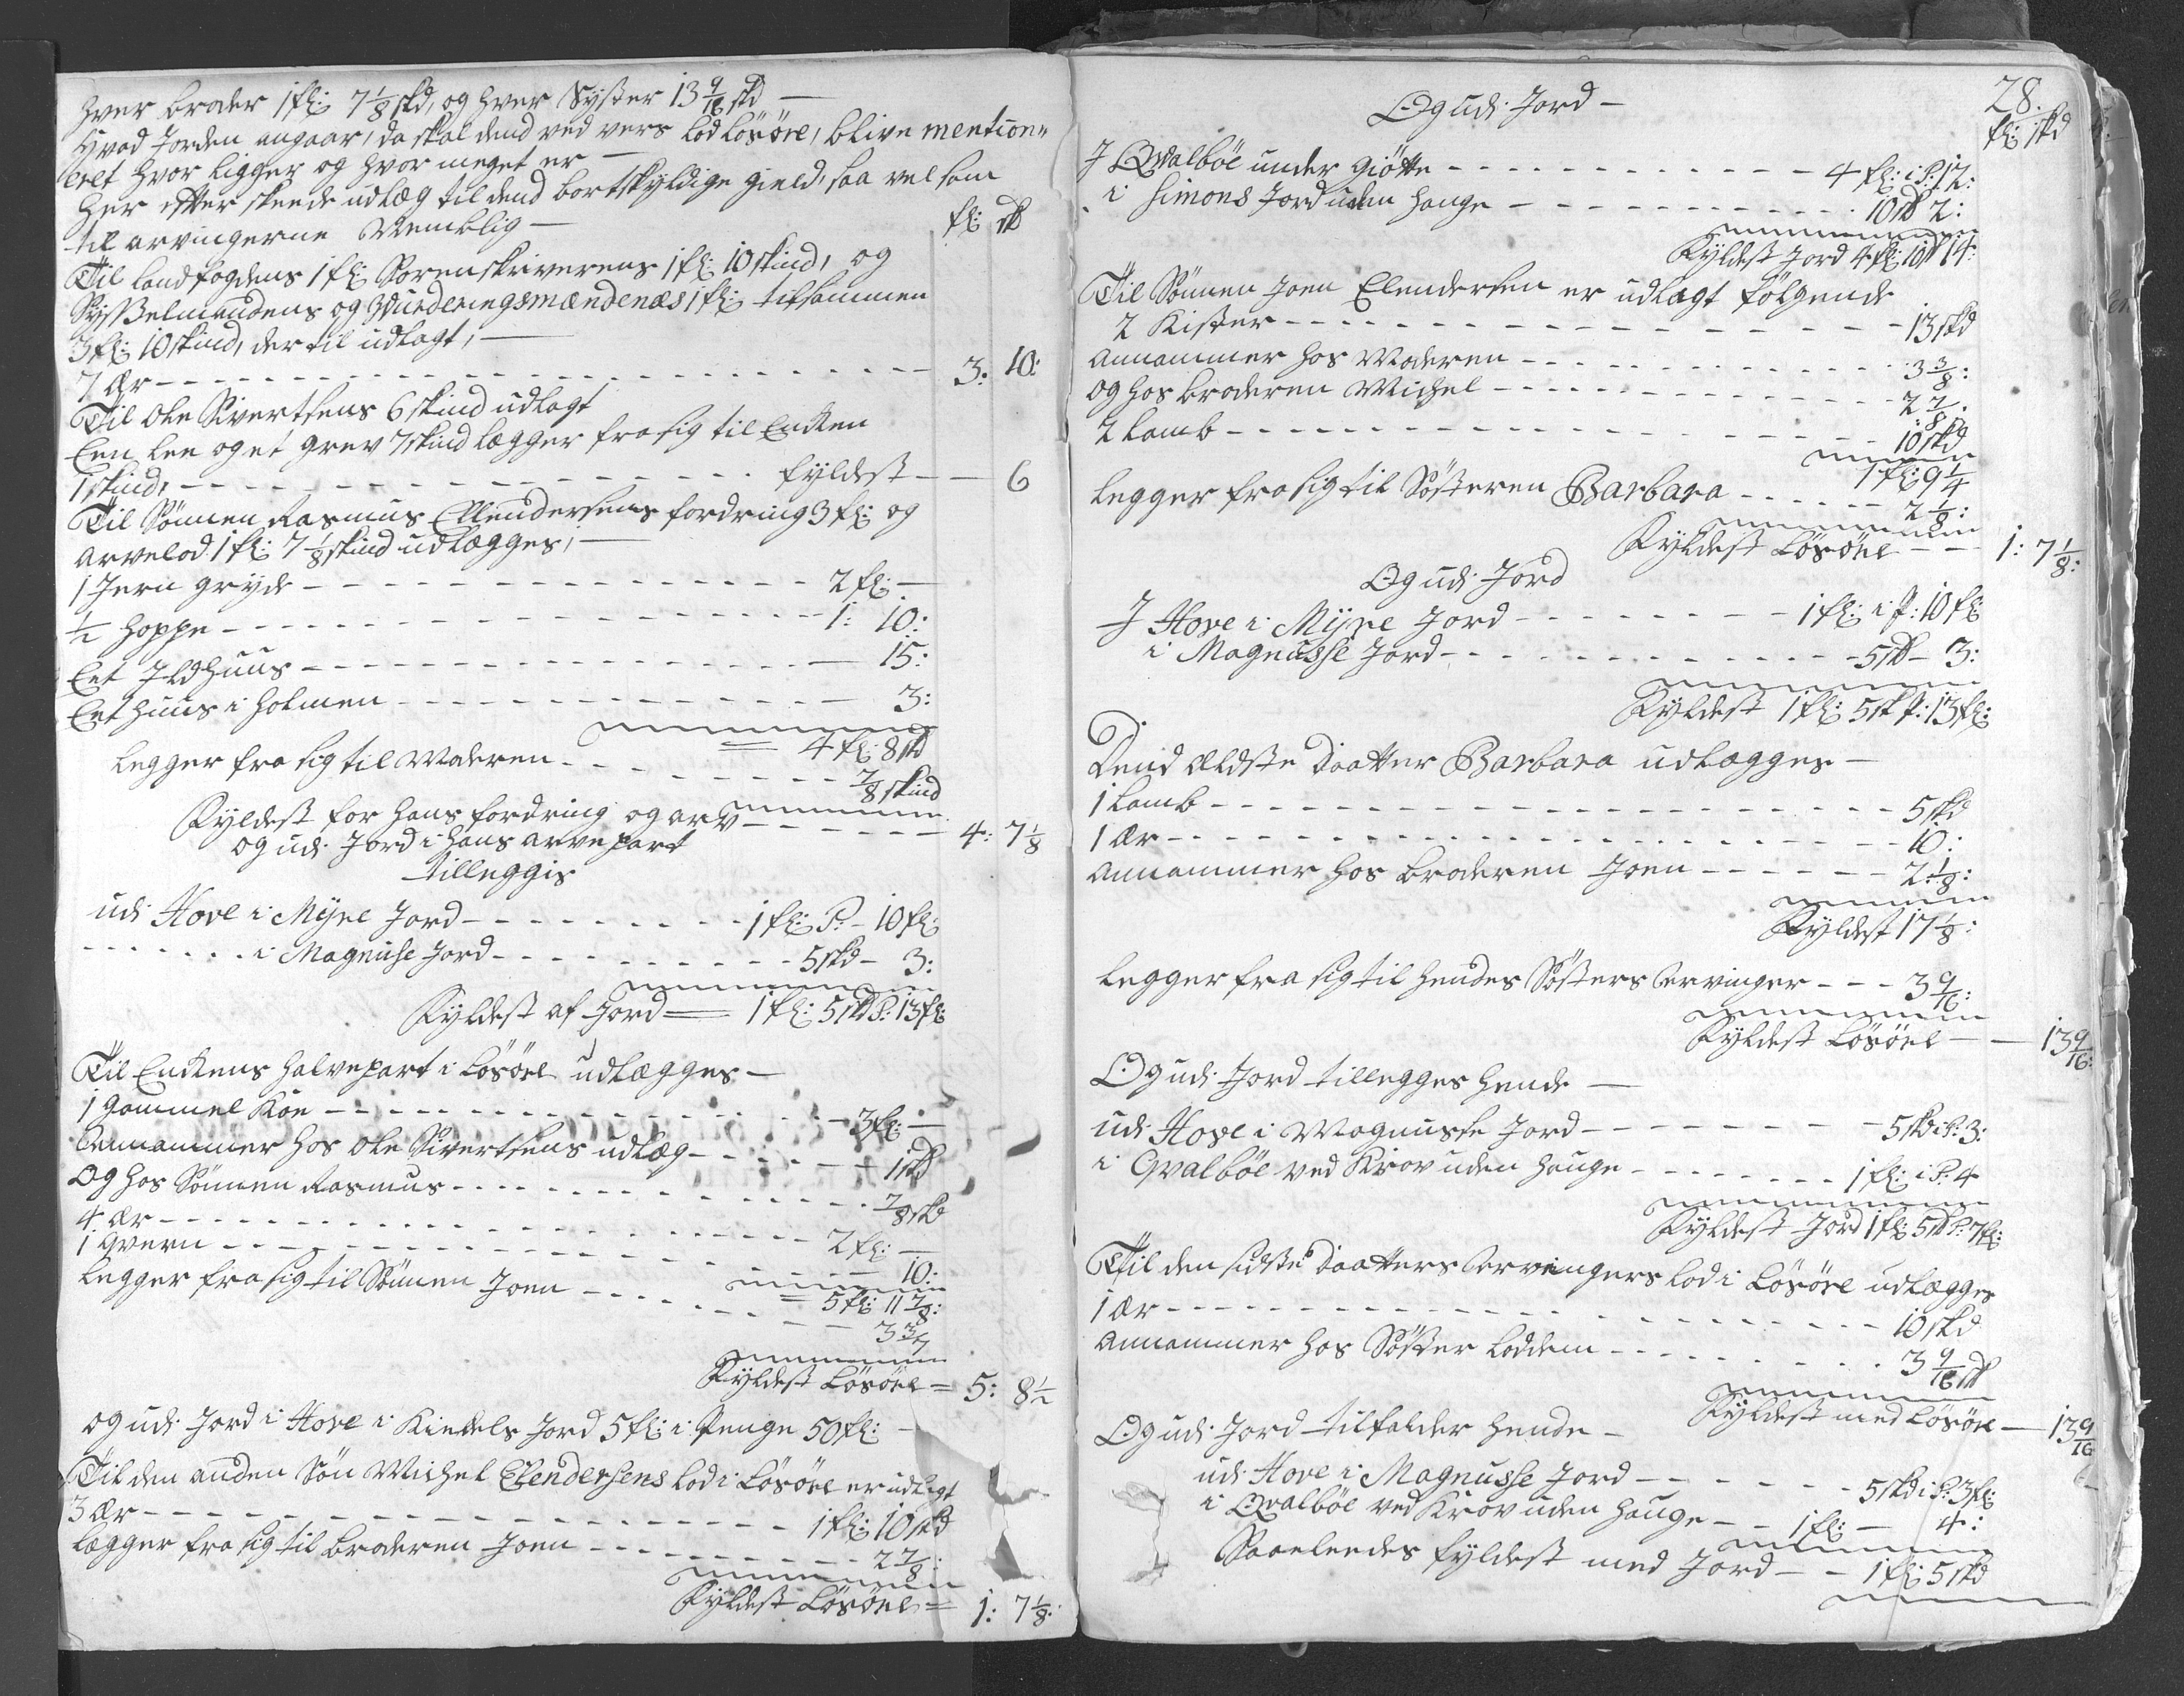 hver broder 1 fl: 7 1/8 skd, og hver Syster 13 9/16 skd —
Hvad Jorden angaar, da skal dend ved vers lod Lösöre, blive mention„
eret hvor ligger og hvor meget er —
Her efter skeede udlæg til dend bortskyldige gield, saa vel som
til arvingerne Nemblig —
fl: skd
Til Landfogdens 1 fl: Sorenskriverens 1 fl: 10 skind, og
Sysselmandens og Wurderingsmændenæs 1 fl: tilsammen
3 fl: 10 skind, der til udlagt, —
7 Ær — 3: 10:
Til Ole Sivertsens 6 skind udlagt
Een Lee og et grev 7 skind legger fra sig til Enken
1 skind, — fyldest — 6
Til Sönnen Rasmus Ellendersens fordring 3 fl: og
arvelod 1 fl: 7 1/8 skind udlægges, —
1 Jern gryde — 2 fl: —
1/2 hoppe — 1: 10:
Eet Ildhuus — 15:
Eet huus i holmen — 3:
= 4 fl: 8 skd
legger fra sig til Moderen — 7/8 skind
Fyldest for hans fordring og arv — 4: 7 1/8
og udi Jord i hans arvepart
tilleggis
udi Hove i Mÿre Jord — 1 fl: P: — 10 fl:
i Magnusse Jord — 5 skd — 3:
Fyldest af Jord = 1 fl: 5 skd P: 13 fl:
Til Enkens halvepart i Lösöre udlægges —
1 gammel Koe — 3 fl: —
Annammer hos Ole Sivertsens udlæg — 1 skd
Og hos Sönnen Rasmus — 7/8 skd
4 Ær — 2 fl: —
1 qvern — 10:
= 5 fl: 11 7/8:
legger fra sig til Sönnen Joen — 3 3/7
Fyldest Lösöre = 5: 8 1/2
og udi Jord i Hove i Kieldels Jord 5 fl: i Penge 50 fl: —
Til den anden Sön Michel Elendersens lod i Lösöre er udlagt
3 Ær — 1 fl: 10 skd
legger fra sig til broderen Joen — 2 7/8:
Fyldest Lösöre = 1: 7 1/8:
28.
Og udi Jord —
fl: skd
I Qvalböe under Giötte — 4 fl: i P: 12:
i Simons Jord uden hauge — 10 skd 2:
Fyldest Jord 4 fl: 10 skd 14:
Til Sönnen Joen Elendersen er udlagt fölgende
2 Kister — 13 skd
annammer hos Moderen — 3 3/8:
og hos broderen Michel — 2 7/8:
2 lamb — 10 skd
1 fl: 9 1/4
legger fra sig til Sösteren Barbara — 2 1/8:
Fyldest Lösöre — 1: 7 1/8:
Og udi Jord
I Hove i Mÿre Jord — 1 fl: i P: 10 fl:
i Magnusse Jord — 5 skd — 3:
Fyldest 1 fl: 5 sk P: 13 fl:
Dend ældste Daatter Barbara udlægges —
1 lamb — 5 skd
1 Ær — 10:
annammer hos broderen Joen — 2 1/8:
Fyldest 17 1/8:
legger fra sig til hendes Sösters Arvinger — 3 9/16:
Fyldest Lösöre — 13 9/16:
Og udi Jord tillegges hende —
udi Hove i Magnusse Jord — 5 skd i P: 3:
i Qvalböe ved Krov uden hauge — 1 fl: i P: 4
Fyldest Jord 1 fl: 5 skd P: 7 fl:
Til den sidste Daatters Arvingers lod i Lösöre udlægges
1 Ær — 10 skd
annammer hos Söster lodden — 3 9/16 skd
Fyldest med Lösöre — 13 9/16
Og udi Jord tilfalder hende —
udi Hove i Magnusse Jord — 5 skd i P: 3 fl:
i Qvalböe ved Krov uden hauge — 1 fl: — 4:
Saaeledes fyldest med Jord — 1 fl: 5 skd